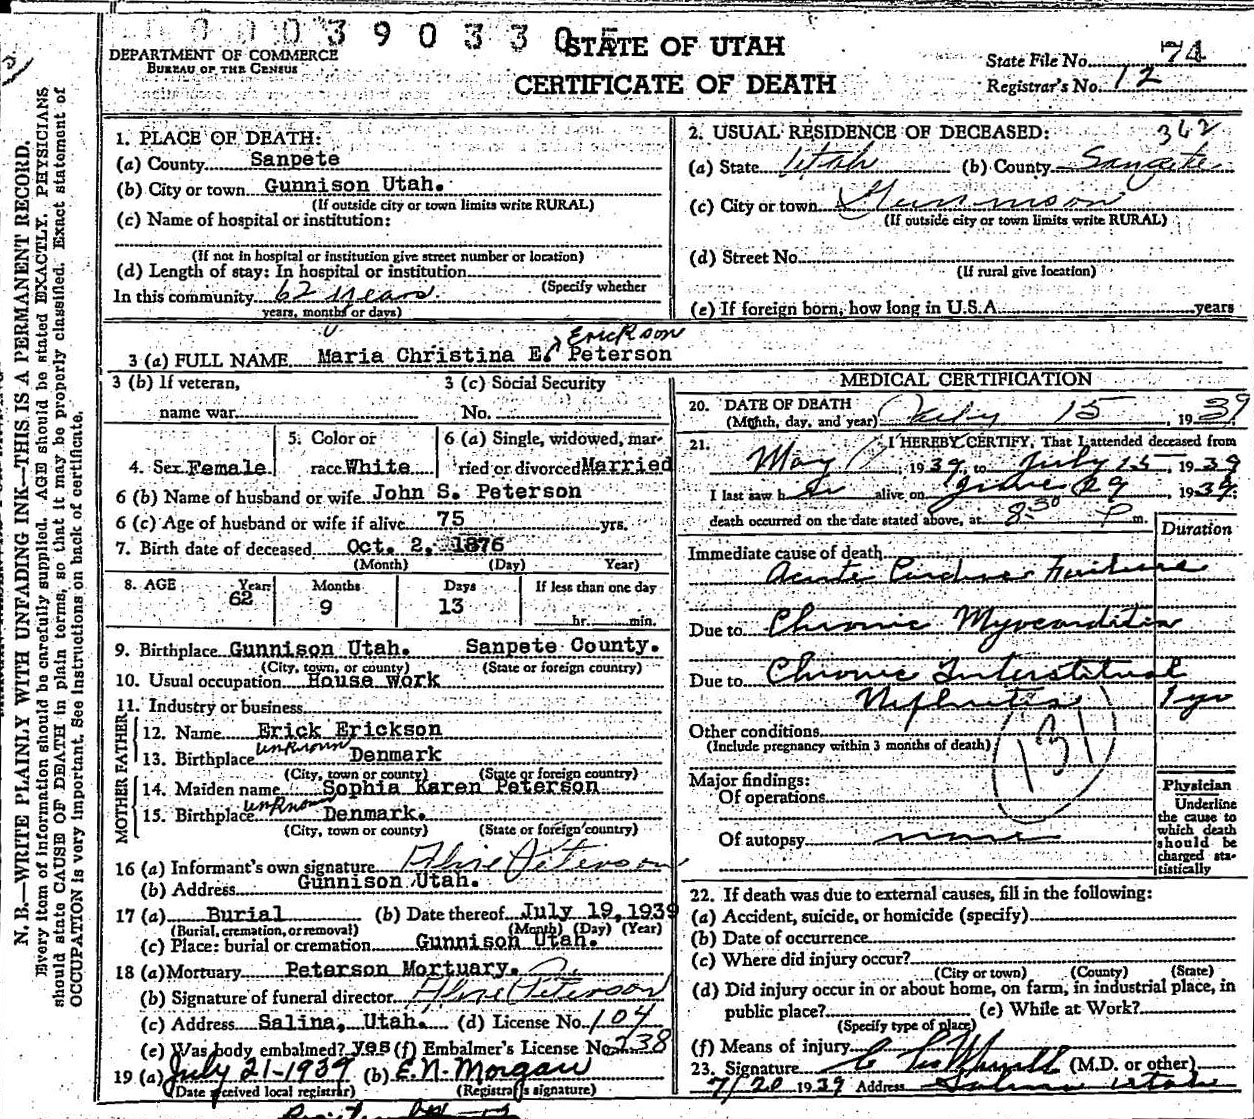 00039033 0
DEPARTMENT OF COMMERCE
BUREAU OF THE CENSUS
STATE OF UTAH
CERTIFICATE OF DEATH
State File No. 74
Registrar's No. 12
N. B.—WRITE PLAINLY WITH UNFADING INK—THIS IS A PERMANENT RECORD.
Every item of information should be carefully supplied. AGE should be stated EXACTLY. PHYSICIANS
should state CAUSE OF DEATH in plain terms, so that it may be properly classified. Exact statement of
OCCUPATION is very important. See Instructions on back of certificate.
1. PLACE OF DEATH:
(a) County Sanpete
(b) City or town Gunnison Utah.
(If outside city or town limits write RURAL)
(c) Name of hospital or institution:
(If not in hospital or institution give street number or location)
(d) Length of stay: In hospital or institution
(Specify whether
In this community 62 years
years, months or days)
2. USUAL RESIDENCE OF DECEASED: 362
(a) State Utah (b) County Sanpete
(c) City or town Gunnison
(If outside city or town limits write RURAL)
(d) Street No.
(If rural give location)
(e) If foreign born, how long in U.S.A. years
Erickson
3 (a) FULL NAME Maria Christina E. Peterson
3 (b) If veteran,
name war
3 (c) Social Security
No.
4. Sex Female
5. Color or
race White
6 (a) Single, widowed, mar-
ried or divorced Married
6 (b) Name of husband or wife John S. Peterson
6 (c) Age of husband or wife if alive 75 yrs.
7. Birth date of deceased Oct. 2, 1876
(Month) (Day) Year)
8. AGE Years Months Days If less than one day
62 9 13 hr. min.
9. Birthplace Gunnison Utah. Sanpete County.
(City, town, or county) (State or foreign country)
10. Usual occupation House work
11. Industry or business
FATHER
12. Name Erick Erickson
13. Birthplace unknown Denmark
(City, town or county) (State or foreign country)
MOTHER
14. Maiden name Sophia Karen Peterson
15. Birthplace unknown Denmark.
(City, town or county) (State or foreign country)
16 (a) Informant's own signature Peterson
(b) Address Gunnison Utah.
17 (a) Burial (b) Date thereof July 19, 1939
(Burial, cremation, or removal) (Month) (Day) (Year)
(c) Place: burial or cremation Gunnison Utah.
18 (a) Mortuary Peterson Mortuary.
(b) Signature of funeral director Peterson
(c) Address Salina, Utah. (d) License No. 104
(e) Was body embalmed? yes (f) Embalmer's License No. 238
19 (a) July 21-1939 (b) E. N. Morgan
(Date received local registrar) (Registrar's signature)
MEDICAL CERTIFICATION
20. DATE OF DEATH
(Month, day, and year) July 15, 1939
21. I HEREBY CERTIFY, That I attended deceased from
May 1939, to July 15 1939
I last saw her alive on June 29 1939,
death occurred on the date stated above, at 8:30 P m.
Duration
Immediate cause of death
Acute Cardiac Failure
Due to Chronic Myocarditis
Due to Chronic Interstitual
Nephritis 1 yr
Other conditions
(Include pregnancy within 3 months of death)
131
Major findings:
Of operations
Of autopsy none
Physician
Underline
the cause to
which death
should be
charged sta-
tistically
22. If death was due to external causes, fill in the following:
(a) Accident, suicide, or homicide (specify)
(b) Date of occurrence
(c) Where did injury occur?
(City or town) (County) (State)
(d) Did injury occur in or about home, on farm, in industrial place, in
public place? (e) While at Work?
(Specify type of place)
(f) Means of injury
23. Signature (M.D. or other)
7/20 1939 Address Salina Utah